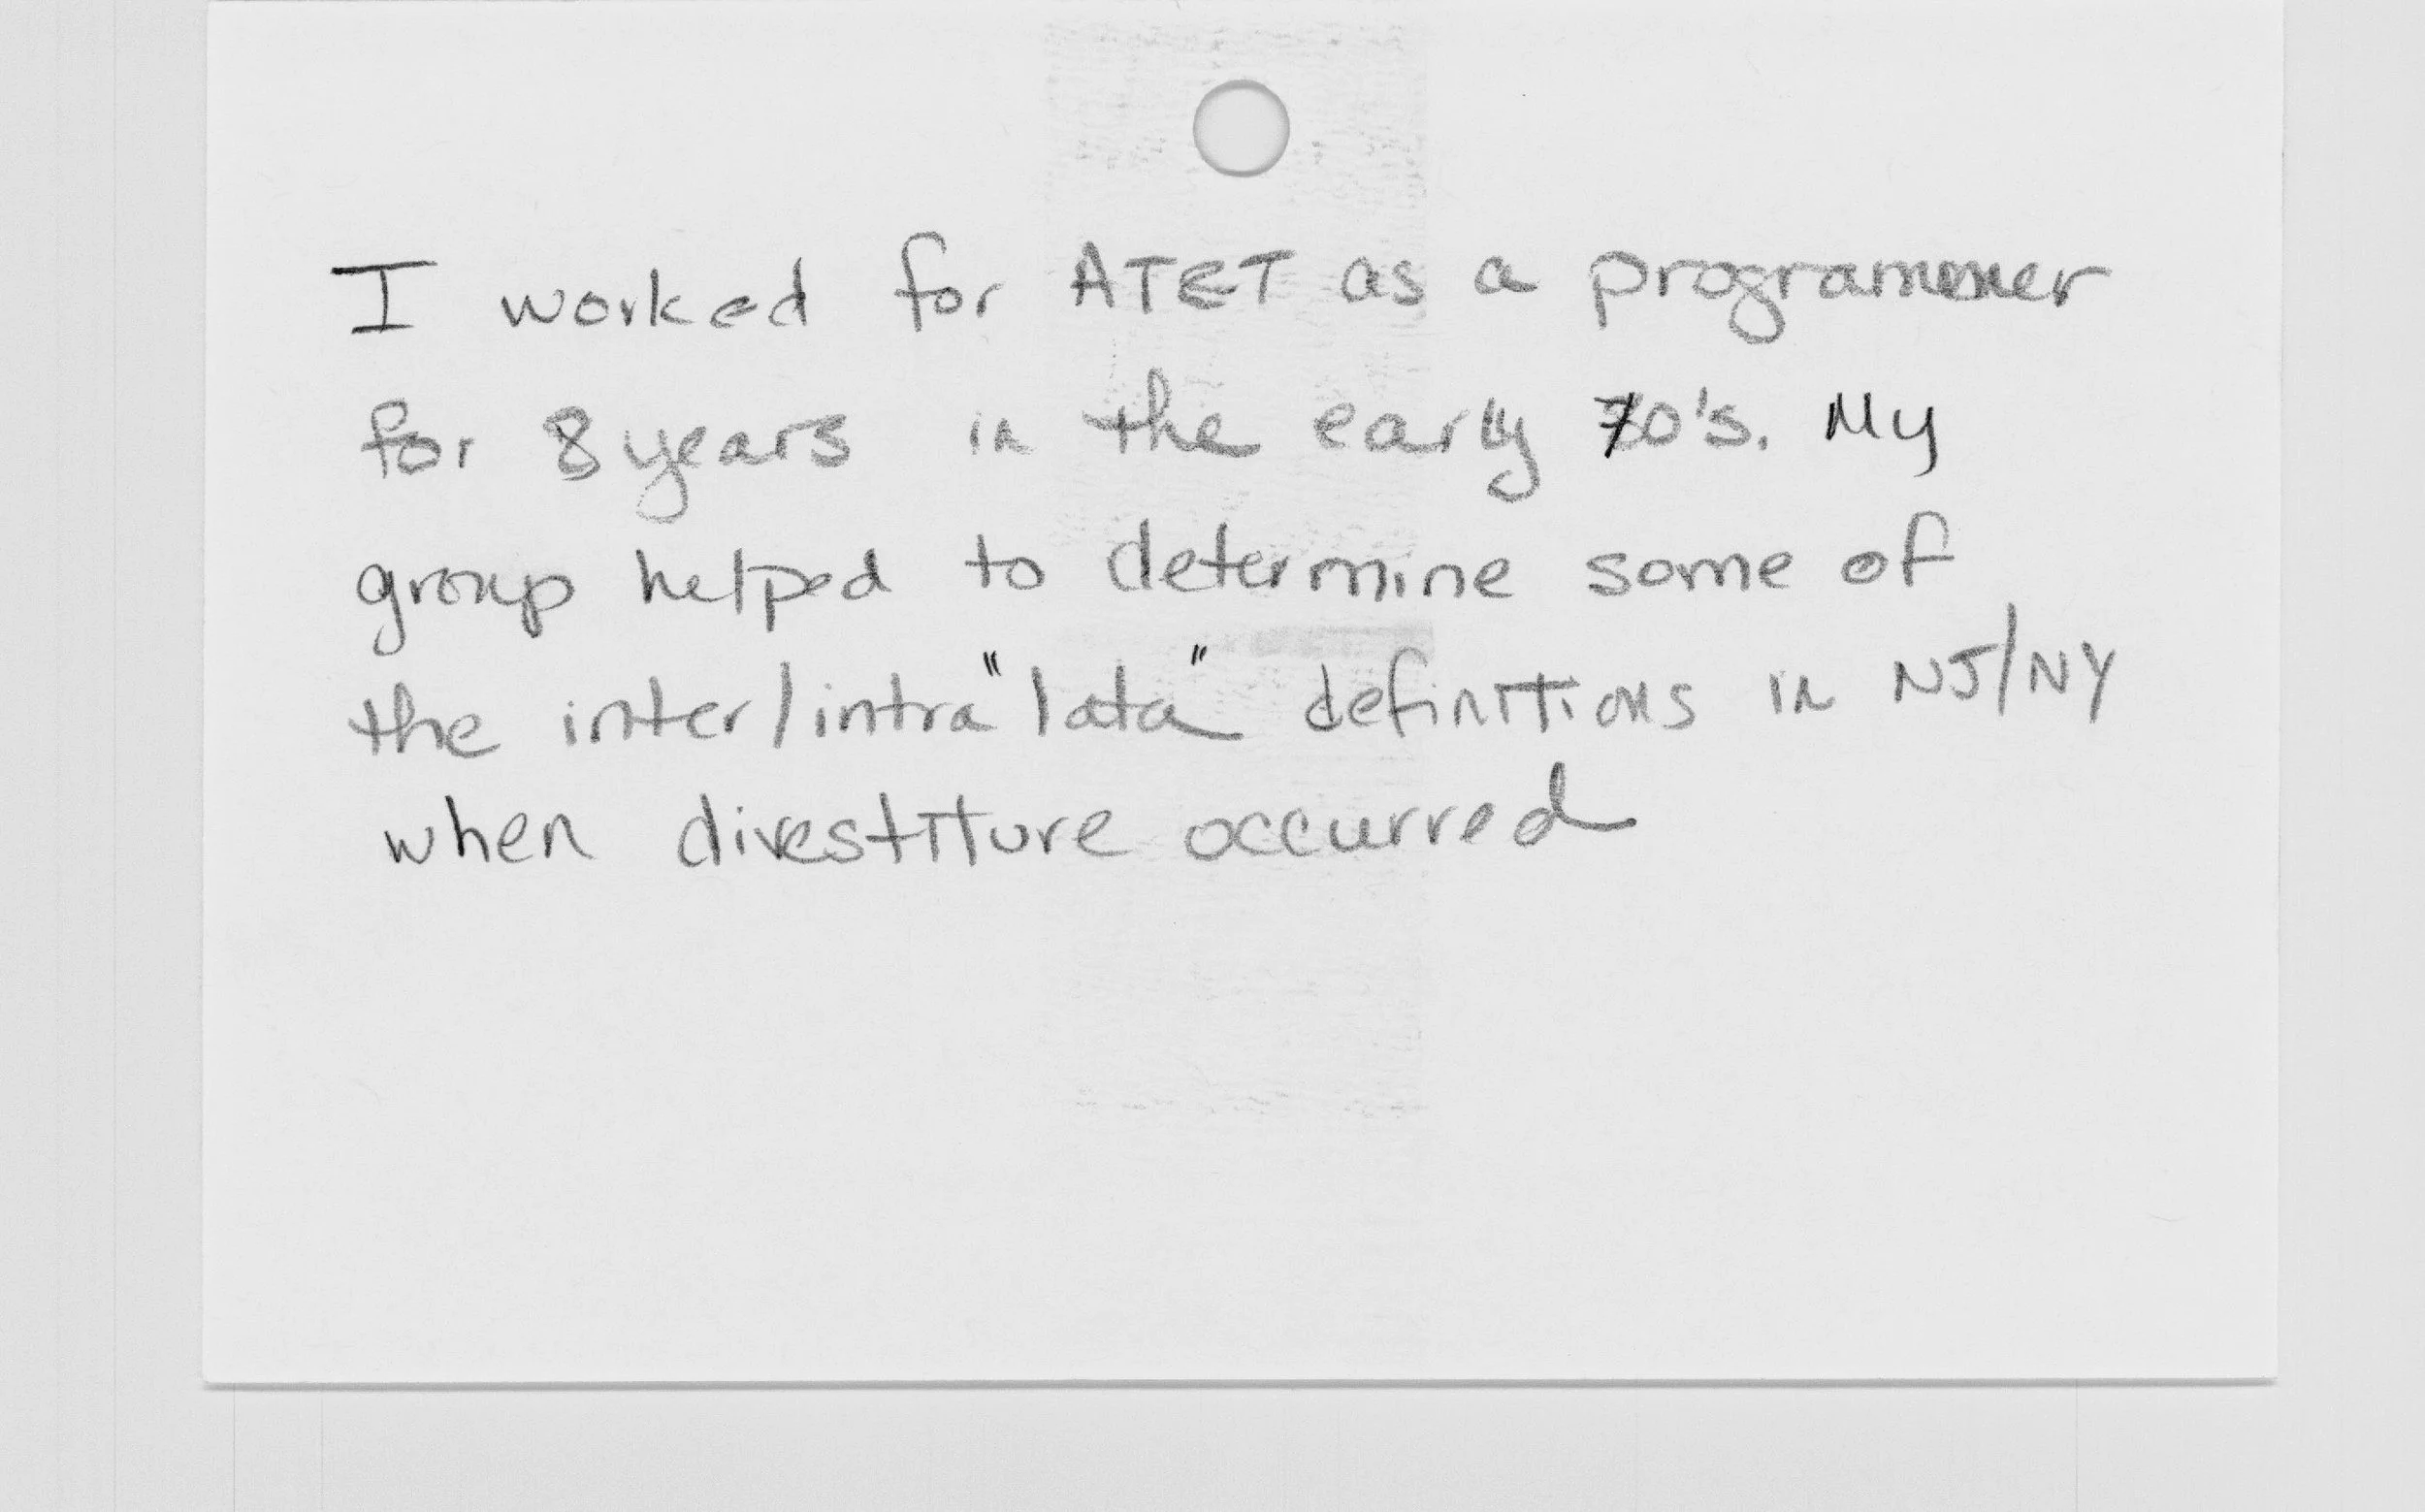 I worked for AT&T as a programmer
for 8 years in the early 70's. My
group helped to determine some of
the inter/intra "lata" definitions in NJ/NY
when divestiture occurred